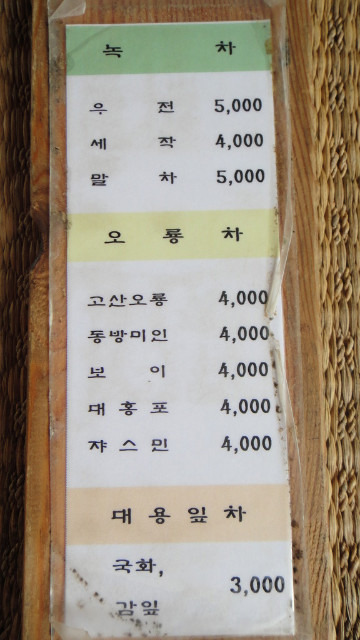 녹 차
우 전 5,000
세 작 4,000
말 차 5,000
오 룡 차
고산오룡 4,000
동방미인 4,000
보 이 4,000
대 홍 포 4,000
쟈 스 민 4,000
대 용 잎 차
국화,
3,000
감잎